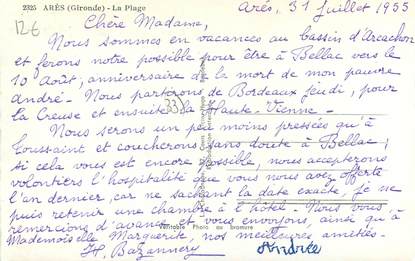 2325 ARÈS (Gironde) - La Plage
12€
Arès, 31 Juillet 1955
Chère Madame,
Nous sommes en vacances au bassin d'Arcachon
et ferons notre possible pour être à Bellac vers le
10 Août, anniversaire de la mort de mon pauvre
André - Nous partirons de Bordeaux jeudi, pour
la Creuse et ensuite la Haute-Vienne -
33
Nous serons un peu moins pressées qu'à
Toussaint et coucherons sans doute à Bellac ;
si cela vous est encore possible, nous accepterons
volontiers l'hospitalité que vous nous avez offerte
l'an dernier, car ne sachant la date exacte, je ne
puis retenir une chambre à l'hôtel. Nous vous
remercions d'avance et vous envoyons, ainsi qu'à
Mademoiselle Marguerite, nos meilleures amitiés -
Véritable Photo au bromure
H. Bazannery
Andrée